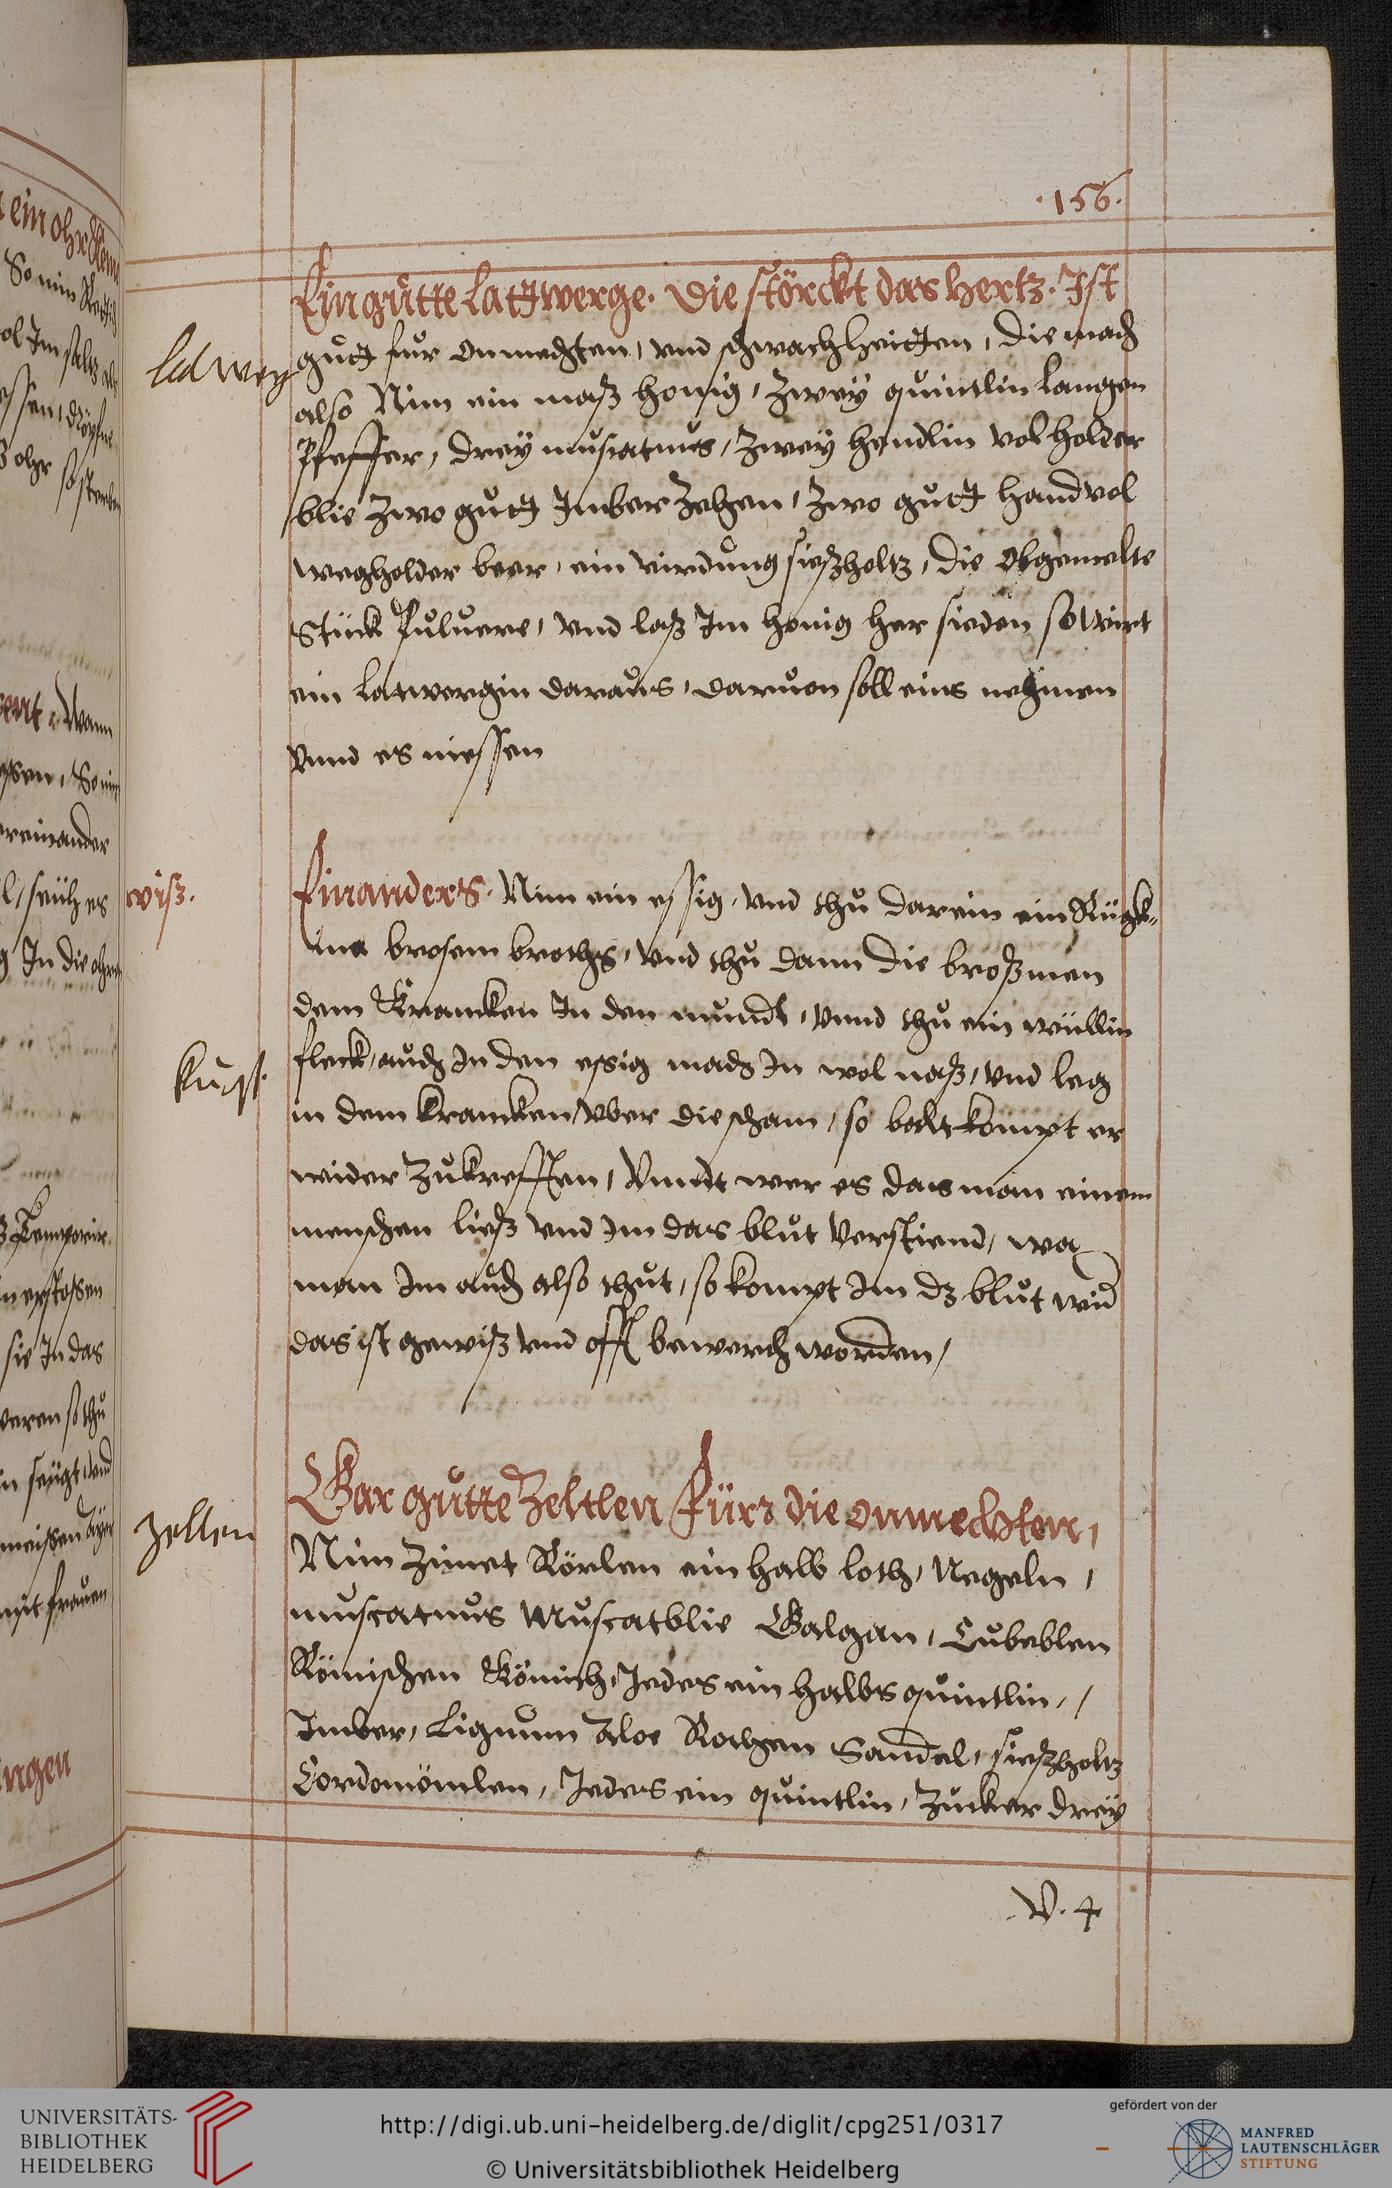 .156.
Ein gutte Lattwerge. Die störckt das hertz. Ist
Latwerg
gutt fur onmechten, vnd schwachheitten, die mach
also Nim ein maß honig, Zwey quintlin langen
Pfeffer, drey muscatnus, Zwey hendlin vol holder
blie Zwo gutt Imber Zehen, Zwo gutt hand vol
wegholder beer, ein virdung sießholtz, die Obgemelte
Stück Puluere, vnd laß Im honig her sieden so wirt
ein latwergin daraus, daruon soll eins nehmen
Vnnd es niessen
Ein anders. Nim ein essig, vnd thu darein ein
brosem broths, vnd thu dann die broßmen
dem Krancken In den mundt, Vnnd thu ein wüllin
fleck, auch In den essig mach In wol naß, vnd leg
in dem krancken vber die scham, so baldt kompt er
wider Zu krefften, Vnndt wer es das man einem
menschen ließ vnd Im das blut verstiend, wa
man Im auch also thut, so kompt Im dz blut wid
das ist gewiß vnd offt bewerth worden,
Gar gutte Zeltlen Fürs die onmechten,
zellen
Nim Zimet Rörlen ein halb loth, Negeln,
muscatnus Muscatblie Galgan, Cubeblen
Römischen Kömich, Jedes ein halbs quintlin,
Imber, Lignum Aloe Rothen Sandel, sießholtz
Cordomömlen, Jedes ein quintlin, Zucker drey
V. 4
UNIVERSITÄTS-
BIBLIOTHEK
HEIDELBERG
http://digi.ub.uni-heidelberg.de/diglit/cpg251/0317
© Universitätsbibliothek Heidelberg
gefördert von der
MANFRED
LAUTENSCHLÄGER
STIFTUNG